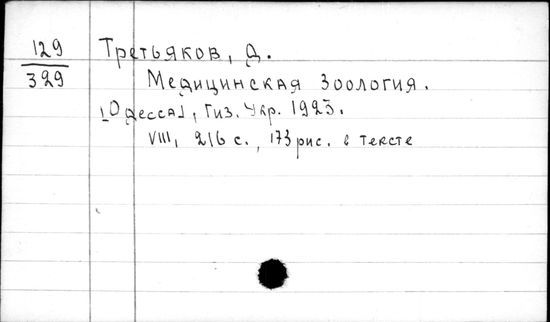 129
329
Третьяков, Д.
Медицинская Зоология.
[Одесса], Гиз. Укр. 1923.
VIII, 216 с., 173 рис. в тексте